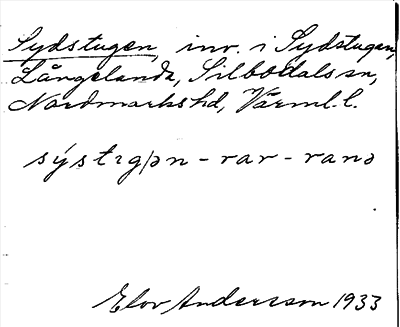 Sydstugen, inv. i Sydstugen,
Långelanda, Silbodals sn,
Nordmarks hd, Värml. l.
sýstꞮg|ən - rar - ranə
Elov Andersson 1933